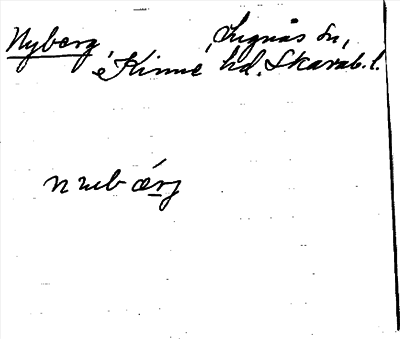 Nyberg, Lugnås sn,
é Kinne hd. Skarab. l.
nub ærj